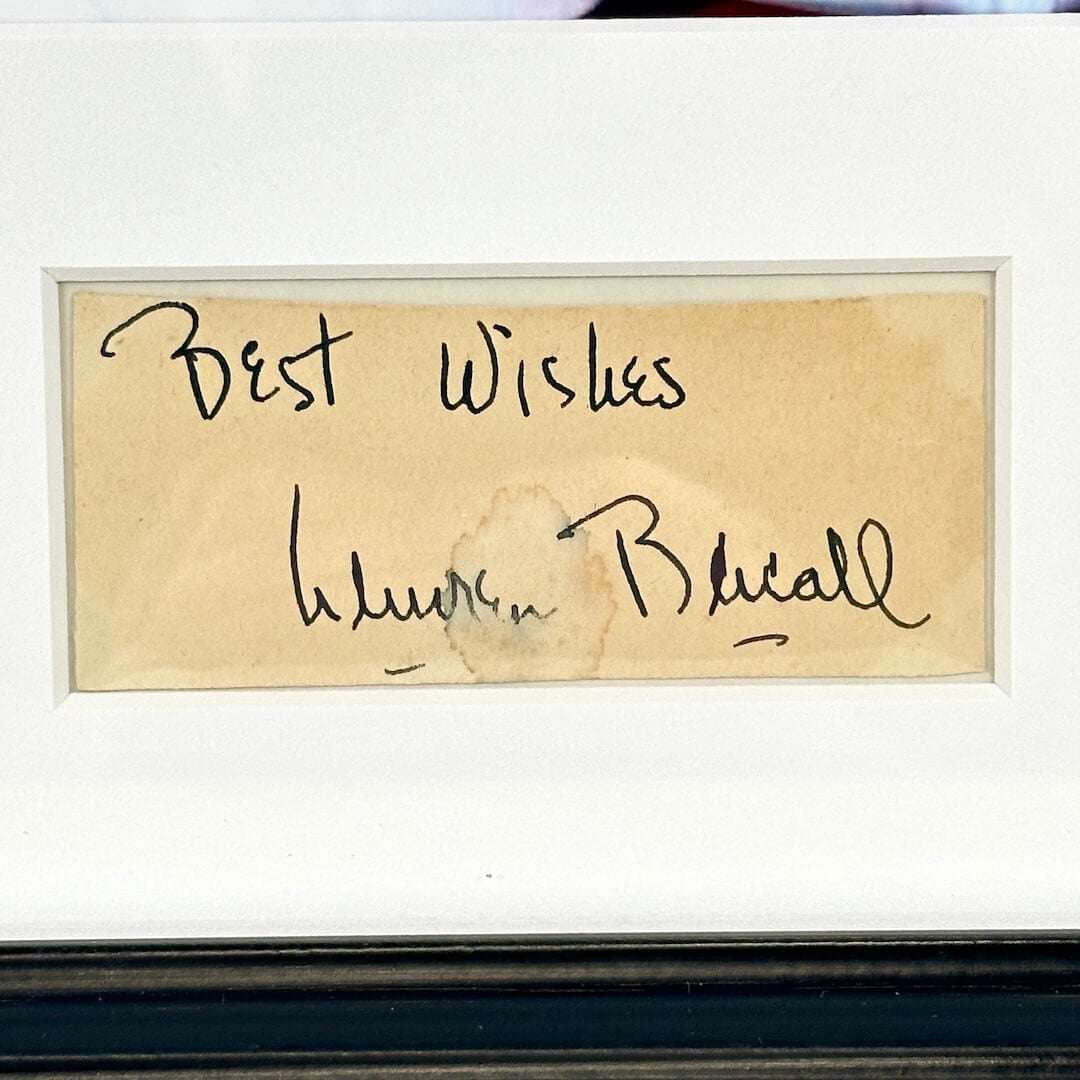 Best Wishes
Lauren Bacall